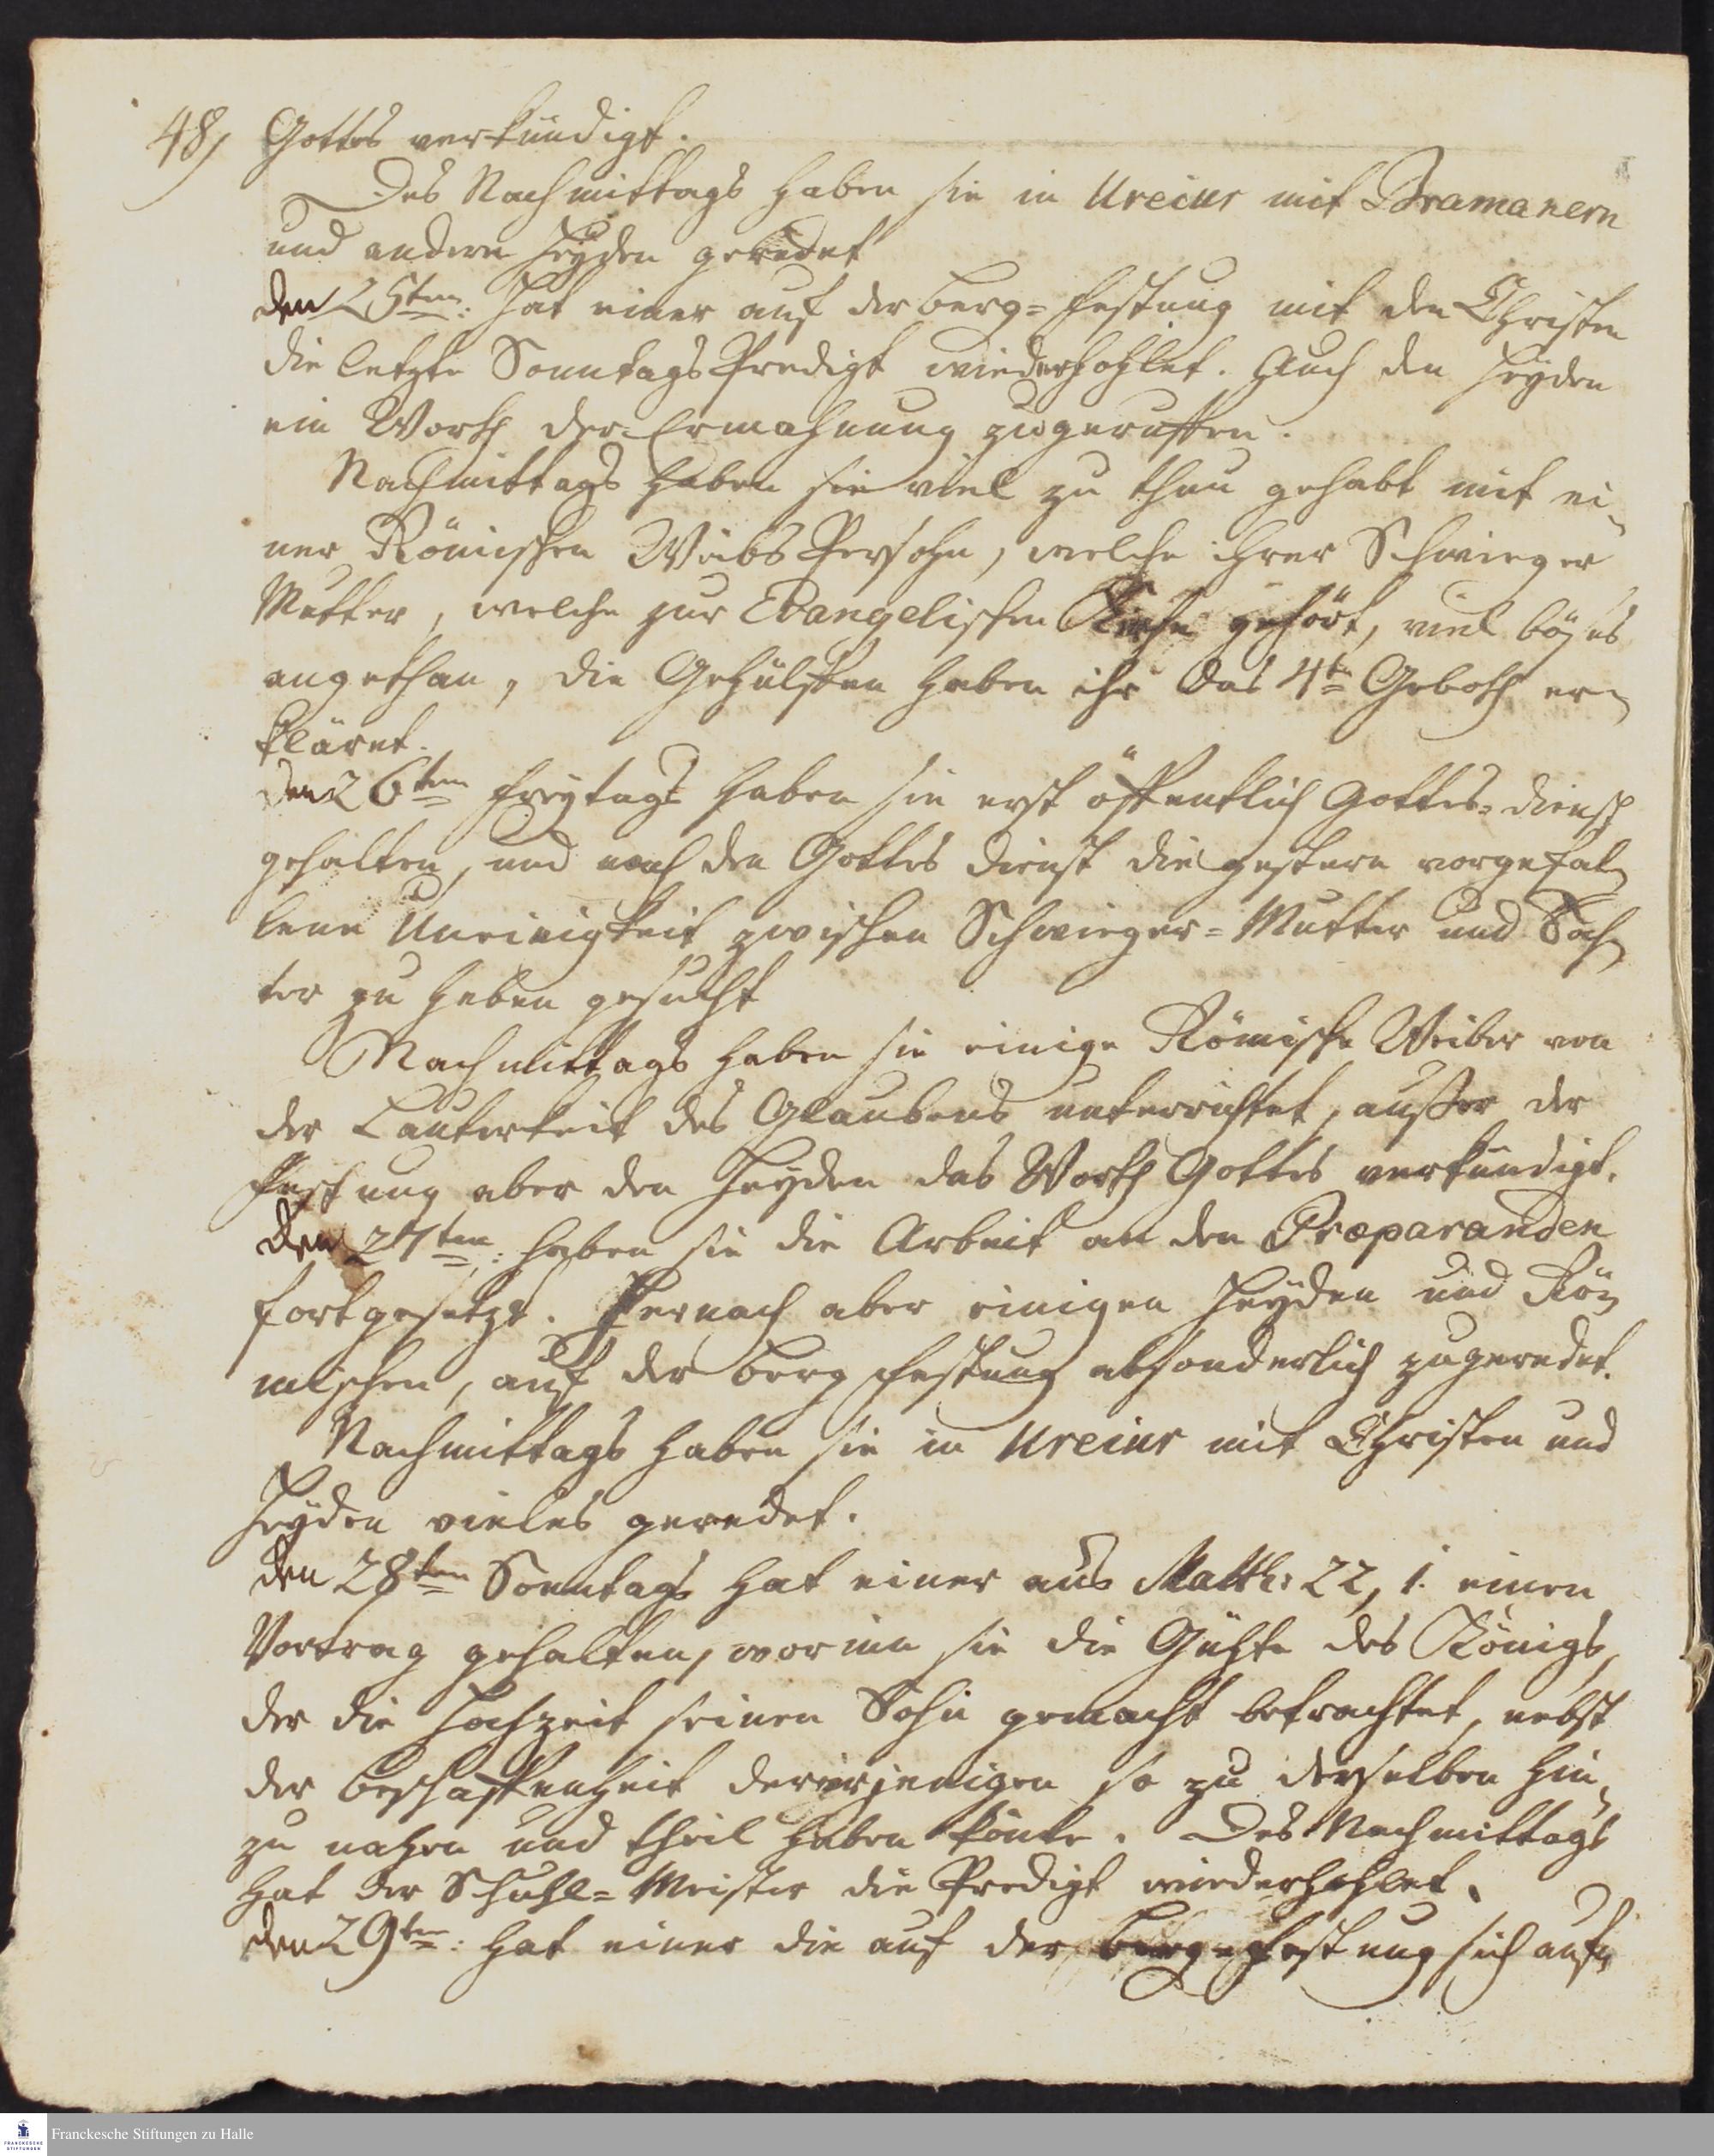 48) Gottes verkündigt.
Des Nachmittags haben sie in Ureiur mit Bramanern
und andern Heyden geredet
den 25ten: hat einer auf der berg-Festung mit den Christen
die letzte Sonntags Predigt wiederhohlet. Auch den Heyden
ein Worth der Ermahnung zugeruffen.
Nachmittags haben sie viel zu thun gehabt mit ei-
ner Römischen Weibs Persohn, welche ihrer Schwieger
Mutter, welche zur Evangelischen Kirche gehört, viel böses
angethan, die Gehülffen haben ihr das 4te Geboth er-
kläret.
den 26ten Freytags haben sie erst öffentlich Gottes-dienst
gehalten, und nach den Gottes dienst die gestern vorgefal-
lene Uneinigkeit zwischen Schwieger-Mutter und Toch-
ter zu heben gesucht
Nachmittags haben sie einige Römische Weiber von
der Lauterkeit des Glaubens unterrichtet, außer der
Festung aber den Heyden das Worth Gottes verkündigt.
den 27ten: haben sie die Arbeit an den Præparanden
fortgesetzt. Hernach aber einigen Heyden und Rö-
mischen, auf der berg Festung absonderlich zugeredet.
Nachmittags haben sie in Ureiur mit Christen und
Heyden vieles geredet.
den 28ten Sonntags hat einer aus Matth: 22, 1. einen
Vortrag gehalten, worinn sie die Gühte des Königs,
der die Hochzeit seinen Sohn gemacht betrachtet, nebst
der beschaffenheit dererjenigen so zu derselben hin-
zu nahen und theil haben könte. Des Nachmittags
hat der Schuhl-Meister die Predigt wiederhohlet.
den 29ten: hat einer die auf der berg-Festung sich auf-
Franckesche Stiftungen zu Halle